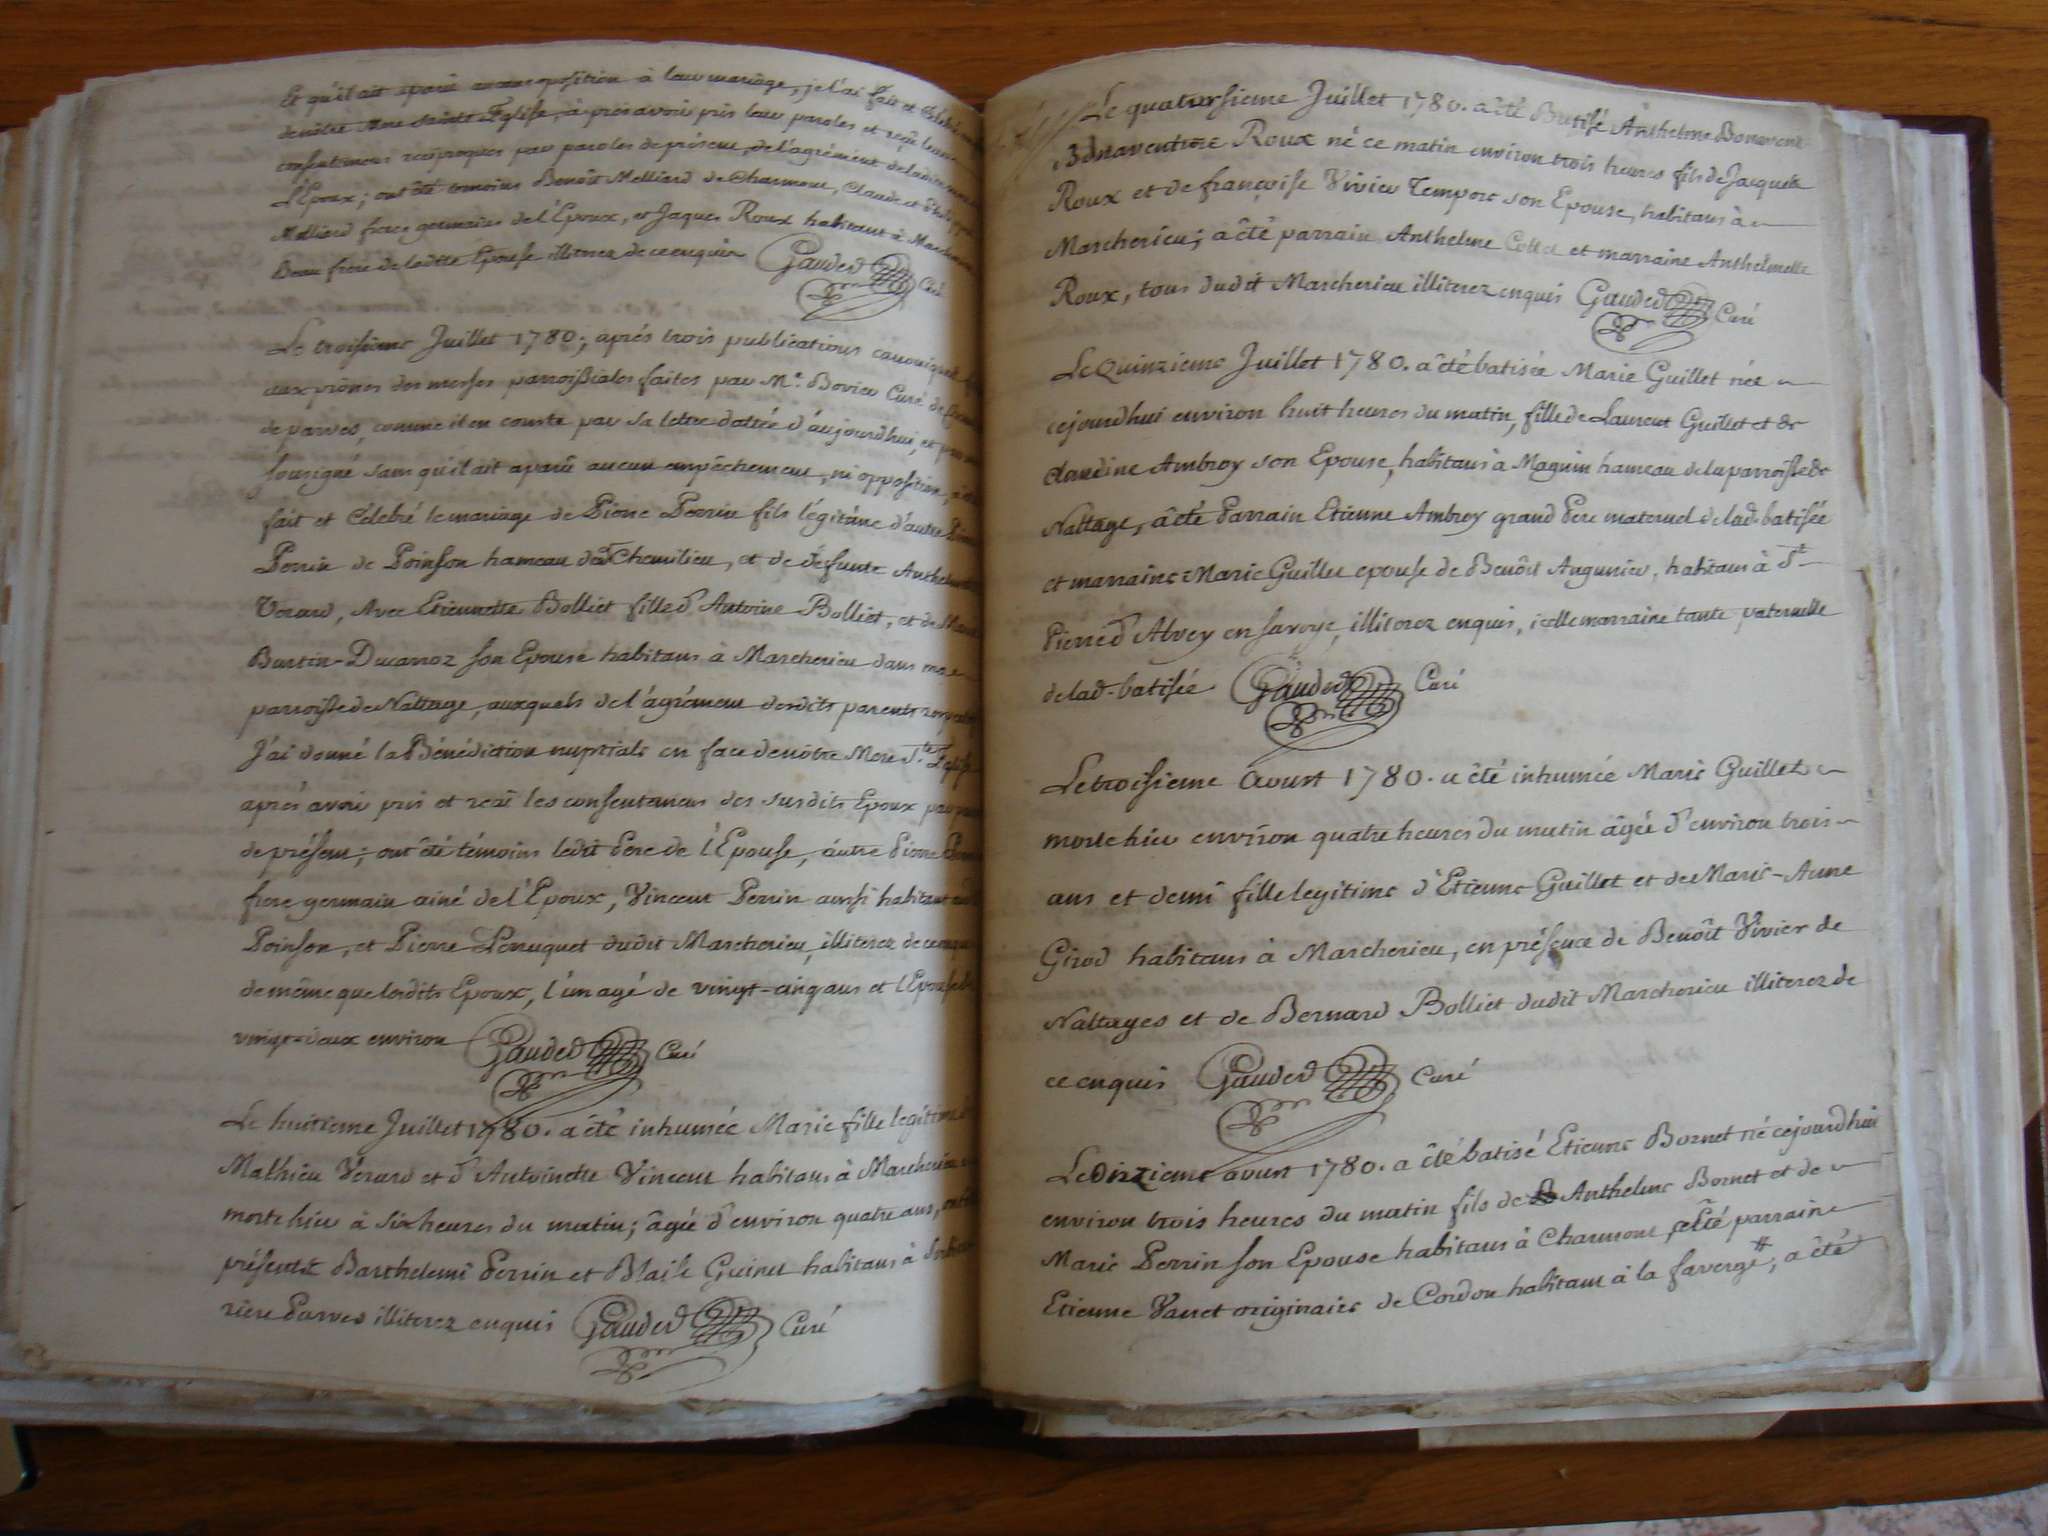 Et qu'il ait aparû aucune oposition à leur mariage, je l'ai fait et Célébré
de nôtre Mere sainte Eglise, à prés avoir pris leur paroles et reçû leurs
consentemens reciproques par paroles de présent, de l'agrément de
L'Epoux; ont été temoins Benoît Melliard de Charmont, Claude et
Melliard freres germains de l'Epoux, et Jaques Roux habitant à
Beau frere de ladite Epouse illiterez de ce enquis Gauded Curé
Le troisieme Juillet 1780; aprés trois publications canoniques
aux prônes des messes parroissiales faites par Mr. Bovier Curé de
de parves, comme il en conste par sa lettre dattée d'aujourdhui, et par
sousigné sans qu'il ait aparû aucun empêchement, ni opposition,
fait et Célebré le mariage de Pierre Perrin fils légitime d'autre
Perrin de Poinson hameau de Chemilieu, et de défunte
Verard, Avec Etiennette Bolliet fille d'Antoine Bolliet, et de
Burtin-Ducarroz son Epouse habitans à Marcherieu dans ma
parroisse de Nattage, auxquels de l'agrément desdits parents
J'ai donné la Bénédiction nuptiale en face de nôtre Mere Ste. Eglise
aprés avoir pris et reçû les consentemens des susdits Epoux par
de présent; ont été témoins ledit Pere de l'Epouse, autre Pierre
frere germain ainé de l'Epoux, Vincent Perrin aussi habitant
Poinson, et Pierre dudit Marcherieu, illiterez de ce enquis
de même que lesdits Epoux, l'un agé de vingt-cinq ans et l'Epouse de
vingt-deux environ Gauded Curé
Le huitieme Juillet 1780. a été inhumée Marie fille legitime
Mathieu Verard et d'Antoinette Vincent habitans à
morte hier à six heures du matin; âgée d'environ quatre ans,
présents Barthelemi Perrin et Blaise Guinet habitans à
riere Parves illiterez enquis Gauded Curé
Le quatorsieme Juillet 1780. a été Batisé Anthelme Bonavent
Bonaventure Roux né ce matin environ trois heures fils de Jacques
Roux et de françoise Vivier Temporc son Epouse, habitans à
Marcherieu; a été parrain Anthelme Collet et marraine Anthelmette
Roux, tous dudit Marcherieu illiterez enquis Gauded Curé
Le Quinzieme Juillet 1780. a été batisée Marie Guillet née
cejourdhui environ huit heures du matin, fille de Laurent Guillet et de
Claudine Ambroy son Epouse, habitans à Maguin hameau de la parroisse de
Nattage, a été Parrain Etienne Ambroy grand Pere maternel de lad. batisée
et marraine Marie Guillet epouse de Benoît habitans à St
Pierre d'Alvey en savoye, illiterez enquis, icelle marraine tante paternelle
de lad. batisée Gauded Curé
Le troisieme Aoust 1780. a été inhumée Marie Guillet
morte hier environ quatre heures du matin âgée d'environ trois
ans et demi fille legitime d'Etienne Guillet et de Marie-Anne
Girod habitans à Marcherieu, en présence de Benoît Vivier de
Nattages et de Bernard Bolliet dudit Marcherieu illiterez de
ce enquis Gauded Curé
Le dizieme aoust 1780. a été batisé Etienne Bornet né cejourdhui
environ trois heures du matin fils de Anthelme Bornet et de
Marie Perrin son Epouse habitans à Charmont, a été parrain
Etienne Vanet originaire de Cordon habitant à la faverge #; a été